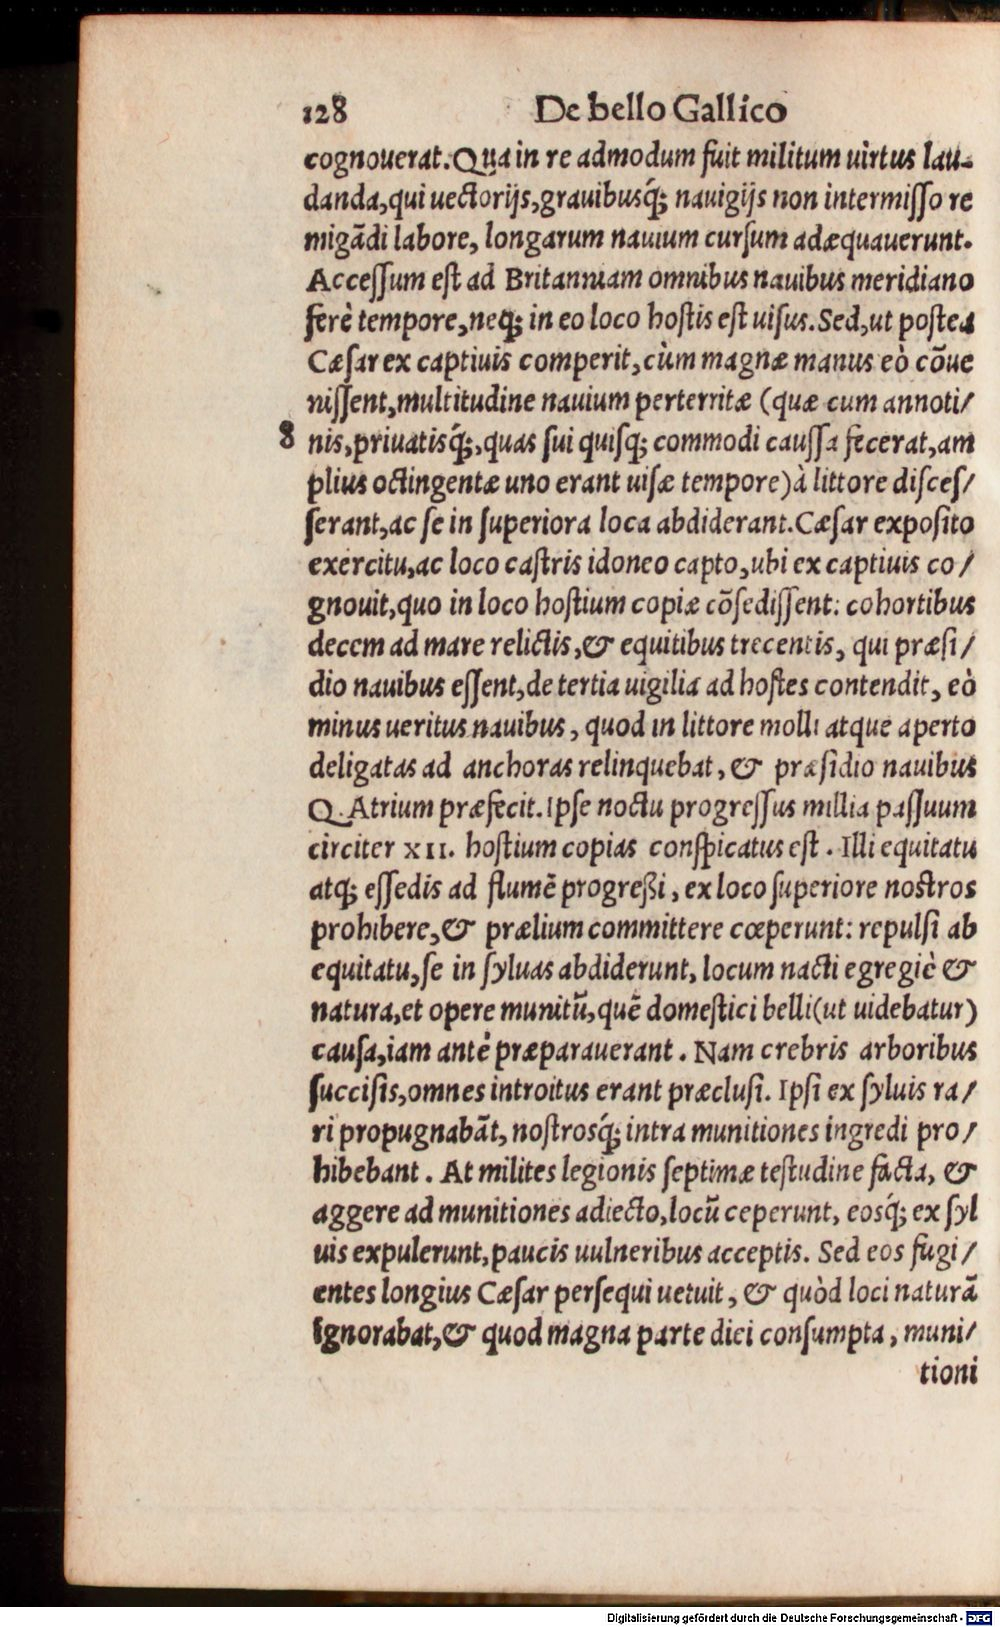 128 De bello Gallico
cognouerat. Qua in re admodum fuit militum uirtus lau-
danda, qui uectorijs, grauibusq́; nauigijs non intermisso re
migãdi labore, longarum nauium cursum adæquauerunt.
Accessum est ad Britanniam omnibus nauibus meridiano
ferè tempore, neq; in eo loco hostis est uisus. Sed, ut postea
Cæsar ex captiuis comperit, cùm magnæ manus eò cõue
nissent, multitudine nauium perterritæ (quæ cum annoti/
8 nis, priuatisq́;, quas sui quisq; commodi caussa fecerat, am
plius octingentæ uno erant uisæ tempore) à littore disces/
serant, ac se in superiora loca abdiderant. Cæsar exposito
exercitu, ac loco castris idoneo capto, ubi ex captiuis co/
gnouit, quo in loco hostium copiæ cõsedissent: cohortibus
decem ad mare relictis, & equitibus trecentis, qui præsi/
dio nauibus essent, de tertia uigilia ad hostes contendit, eò
minus ueritus nauibus, quod in littore molli atque aperto
deligatas ad anchoras relinquebat, & præsidio nauibus
Q. Atrium præfecit. Ipse noctu progressus millia passuum
circiter XII. hostium copias conspicatus est. Illi equitatu
atq; essedis ad flumẽ progreßi, ex loco superiore nostros
prohibere, & prælium committere cœperunt: repulsi ab
equitatu, se in syluas abdiderunt, locum nacti egregiè &
natura, et opere munitũ, quẽ domestici belli (ut uidebatur)
causa, iam antè præparauerant. Nam crebris arboribus
succisis, omnes introitus erant præclusi. Ipsi ex syluis ra/
ri propugnabãt, nostrosq́; intra munitiones ingredi pro/
hibebant. At milites legionis septimæ testudine facta, &
aggere ad munitiones adiecto, locũ ceperunt, eosq́; ex syl
uis expulerunt, paucis uulneribus acceptis. Sed eos fugi/
entes longius Cæsar persequi uetuit, & quòd loci naturã
ignorabat, & quod magna parte diei consumpta, muni/
tioni
Digitalisierung gefördert durch die Deutsche Forschungsgemeinschaft - DFG